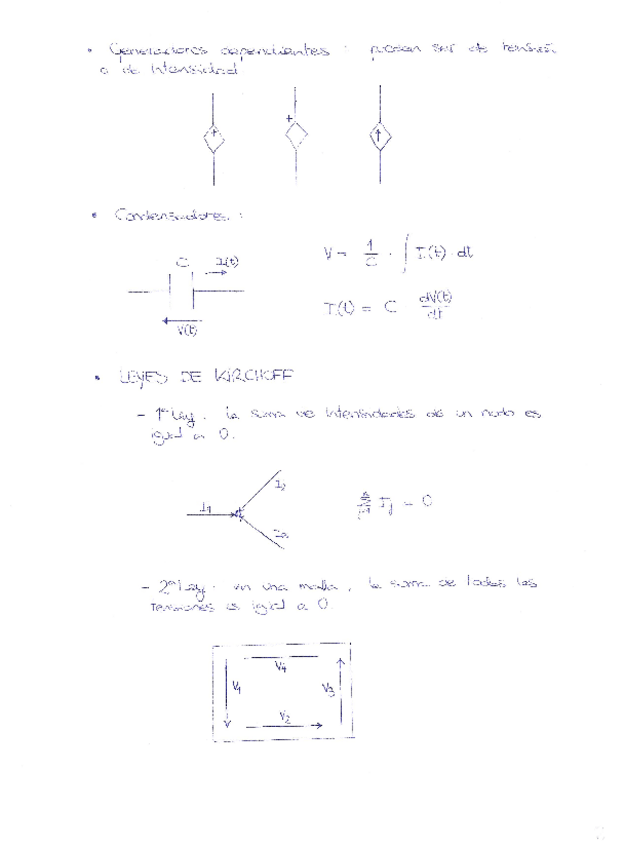 • Generadores dependientes : pueden ser de tensión
o de Intensidad
+
+
• Condensadores :
C I(t)
V(t)
V = 1/C · ∫ I(t) · dt
I(t) = C dV(t)/dt
• LEYES DE KIRCHOFF
- 1ª Ley . La suma de Intensidades de un nudo es
igual a 0.
I1
I2
∑ Ij = 0
j=1
- 2ª Ley . en una malla , la suma de todas las
Tensiones es igual a 0.
V4
V1
V3
V2